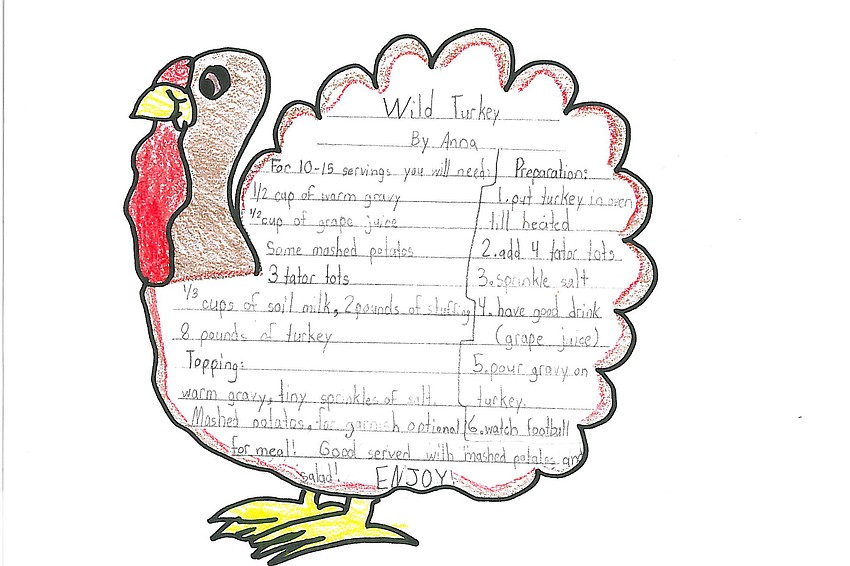 Wild Turkey
By Anna
For 10-15 servings you will need:
1/2 cup of warm gravy
1/2 cup of grape juice
Some mashed potatos
3 tator tots
1/3 cups of soil milk, 2 pounds of stuffing
8 pounds of turkey
Topping:
warm gravy, tiny sprinkles of salt.
Mashed potatos, for garnish optional
Preparation:
1. put turkey in oven
till heated
2. add 4 tator tots
3. sprinkle salt
4. have good drink
(grape juice)
5. pour gravy on
turkey.
6. watch football
for meal! Good served with mashed potatos and
salad! ENJOY!